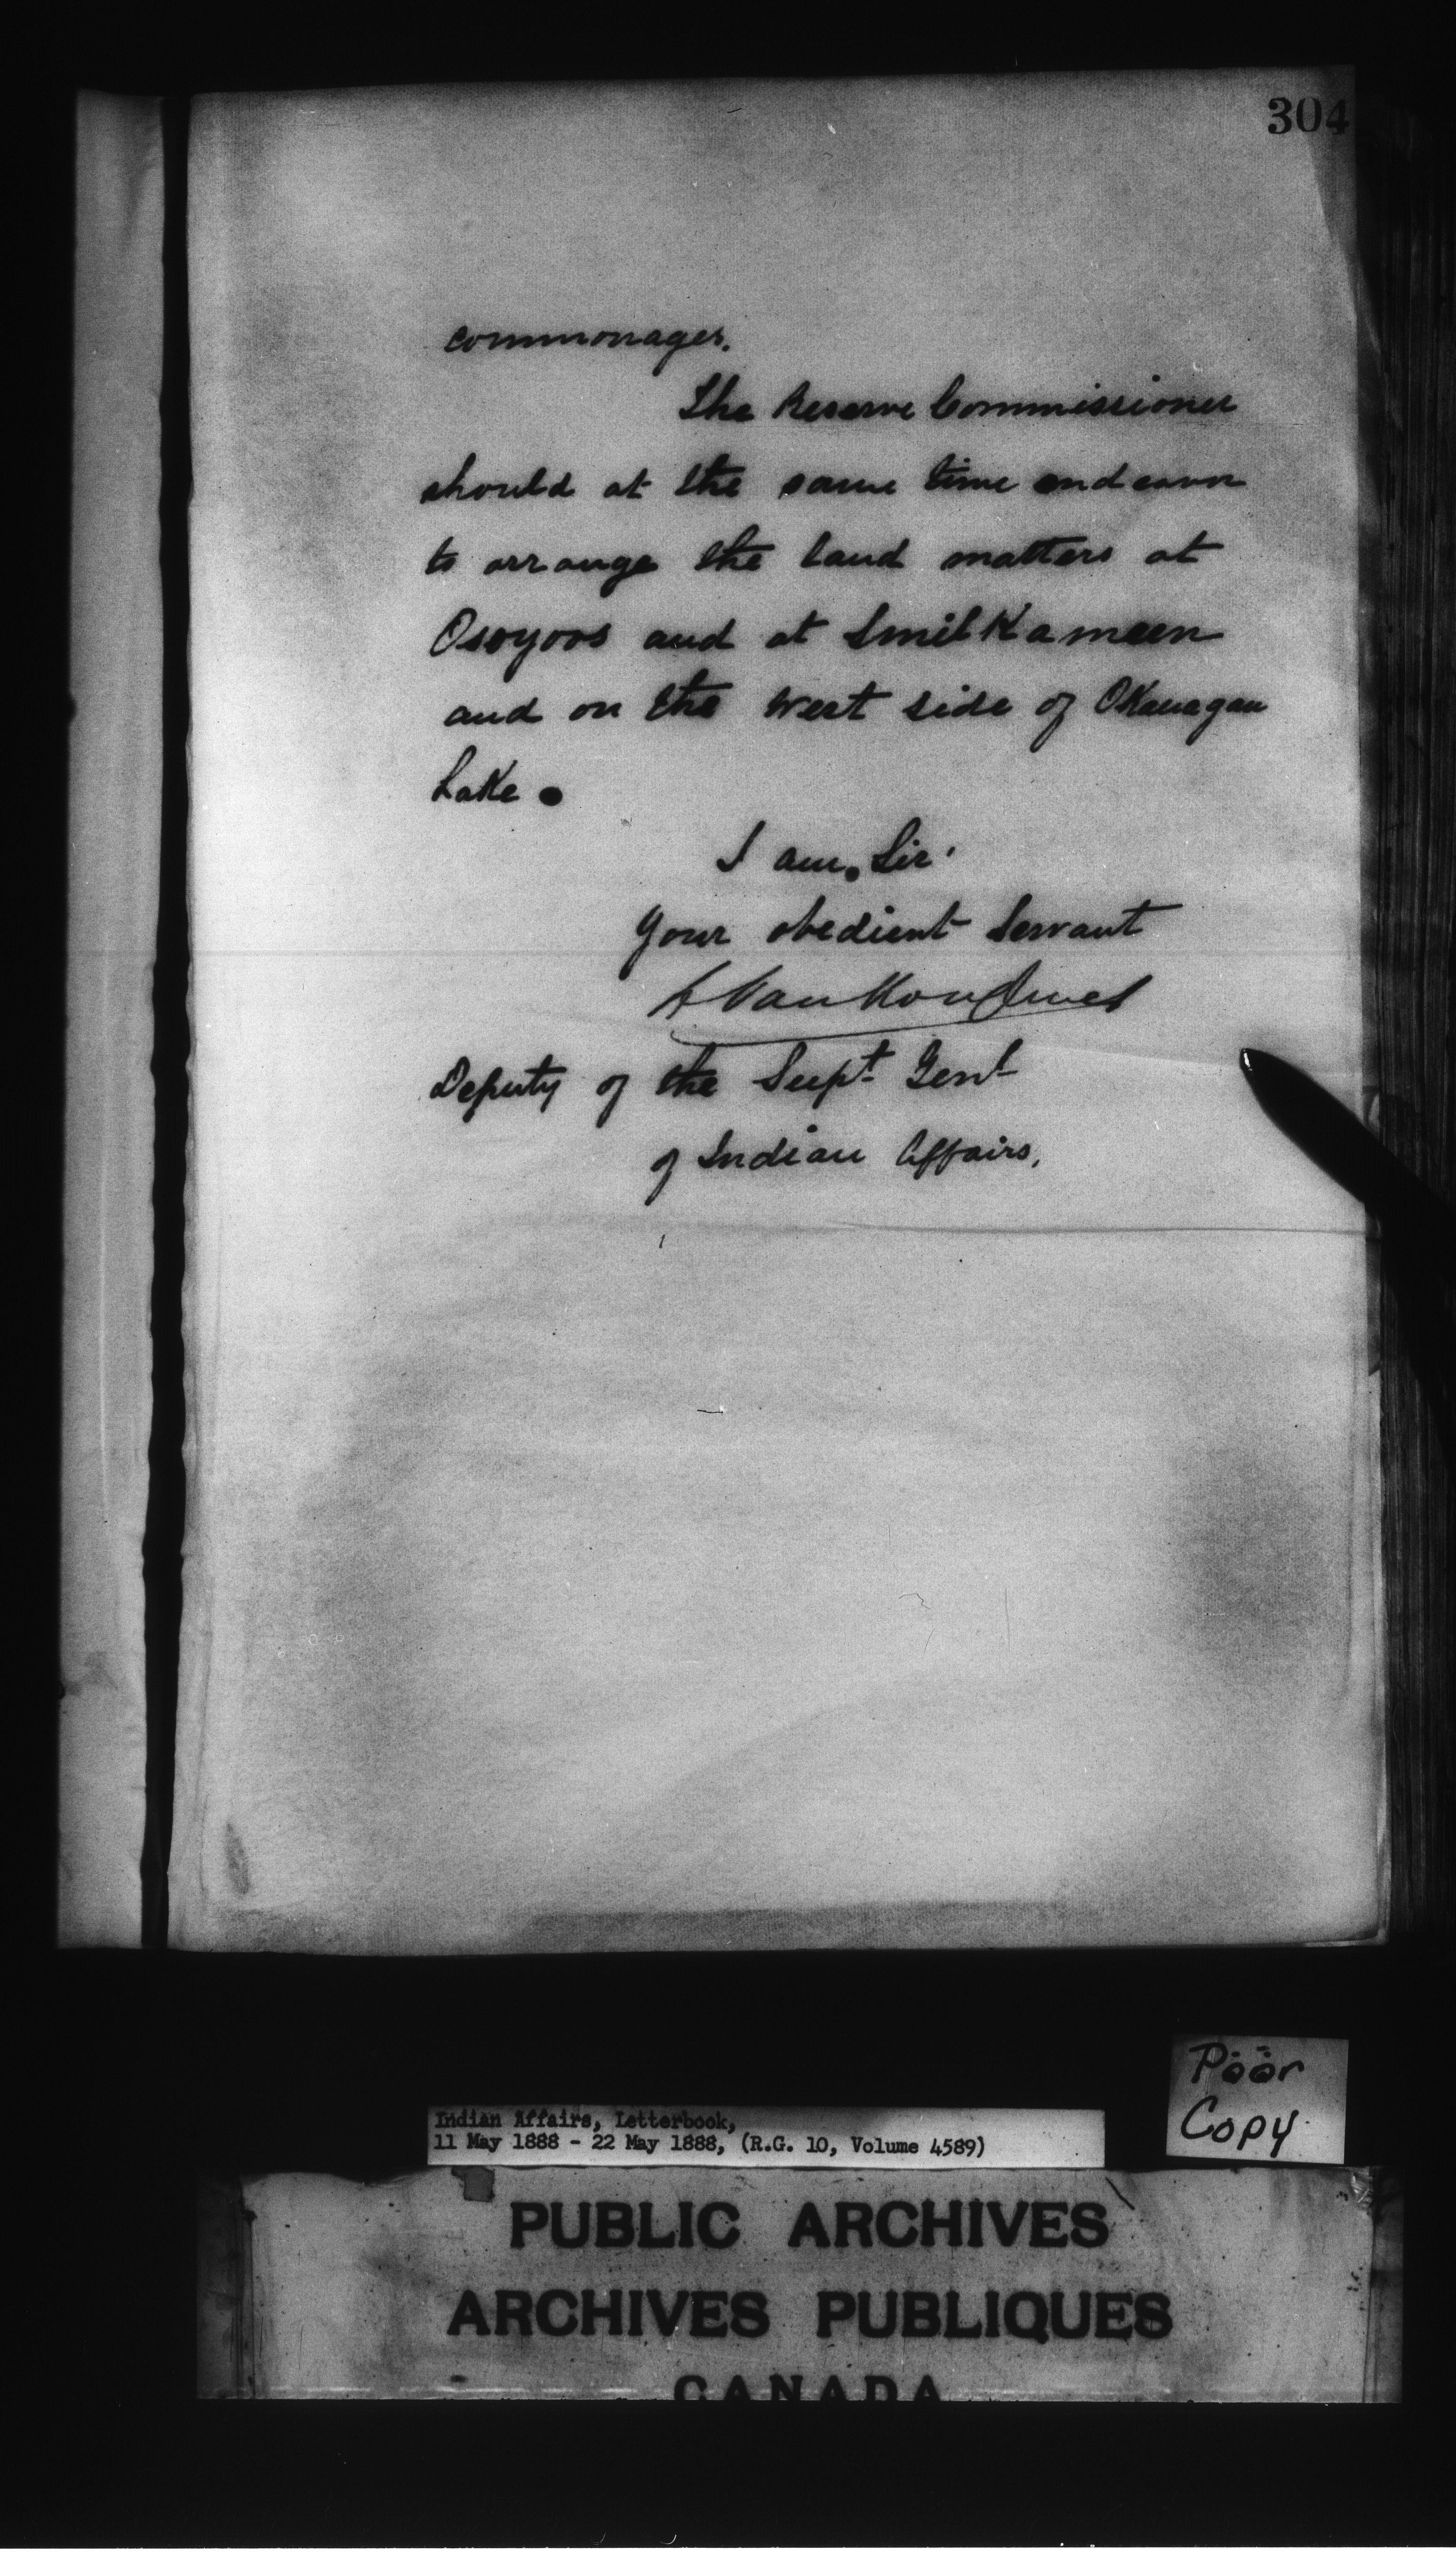 304
commonages.
The Reserve Commissioner
should at the same time endeavor
to arrange the land matters at
Osoyoos and at SmilKameen
and on the west side of OKanagan
LaKe.
I am, Sir.
Your obedient Servant
L VanKoughnet
Deputy of the Supt Genl
of Indian Affairs.
Poor
Copy
Indian Affairs, Letterbook,
11 May 1888 - 22 May 1888, (R.G. 10, Volume 4589)
PUBLIC ARCHIVES
ARCHIVES PUBLIQUES
CANADA